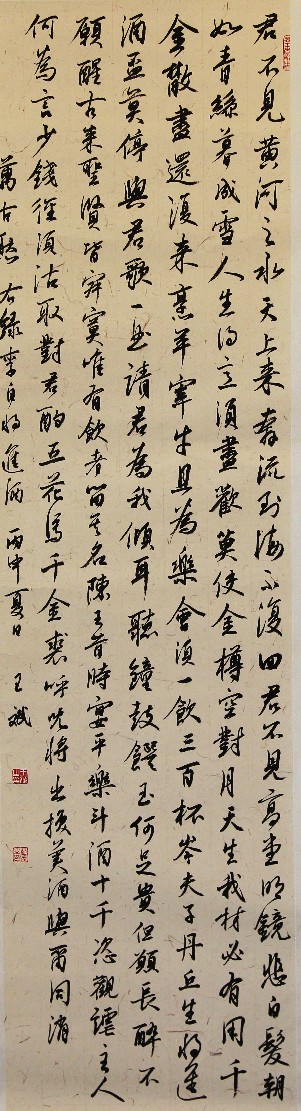 君不见黄河之水天上来奔流到海不复回君不见高堂明镜悲白髮朝
如青絲暮成雪人生得意須盡歡莫使金樽空對月天生我材必有用千
金散盡還復来烹羊宰牛且為樂會須一飲三百杯岑夫子丹丘生将進
酒盃莫停與君歌一曲請君為我傾耳聽鐘鼓饌玉何足貴但願長醉不
願醒古来聖賢皆寂寞唯有飲者留其名陳王昔時宴平樂斗酒十千恣觀謔主人
何為言少錢徑須沽取對君酌五花馬千金裘呼児将出换美酒與爾同消
萬古愁 右錄李白将進酒 丙申夏日 王斌